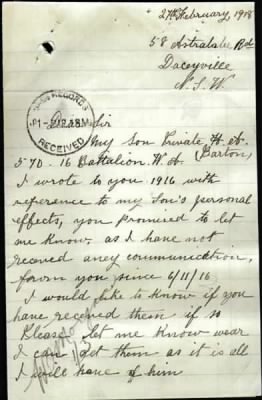 27th February, 1918
58 Astrolabe Rd
Daceyville
N. S. W.
RECORDS
RECEIVED
Dear Sir
My Son Private H. A.
(Barton)
570 - 16 Battalion. W. A
I wrote to you 1916 with
reference to my Son's personal
effects, you promised to let
me know, as I have not
receved aney communication,
forom you since 6/11/16
I would like to know if you
have receved them if so
Please let me know wear
I can get them as it is all
I will have of him